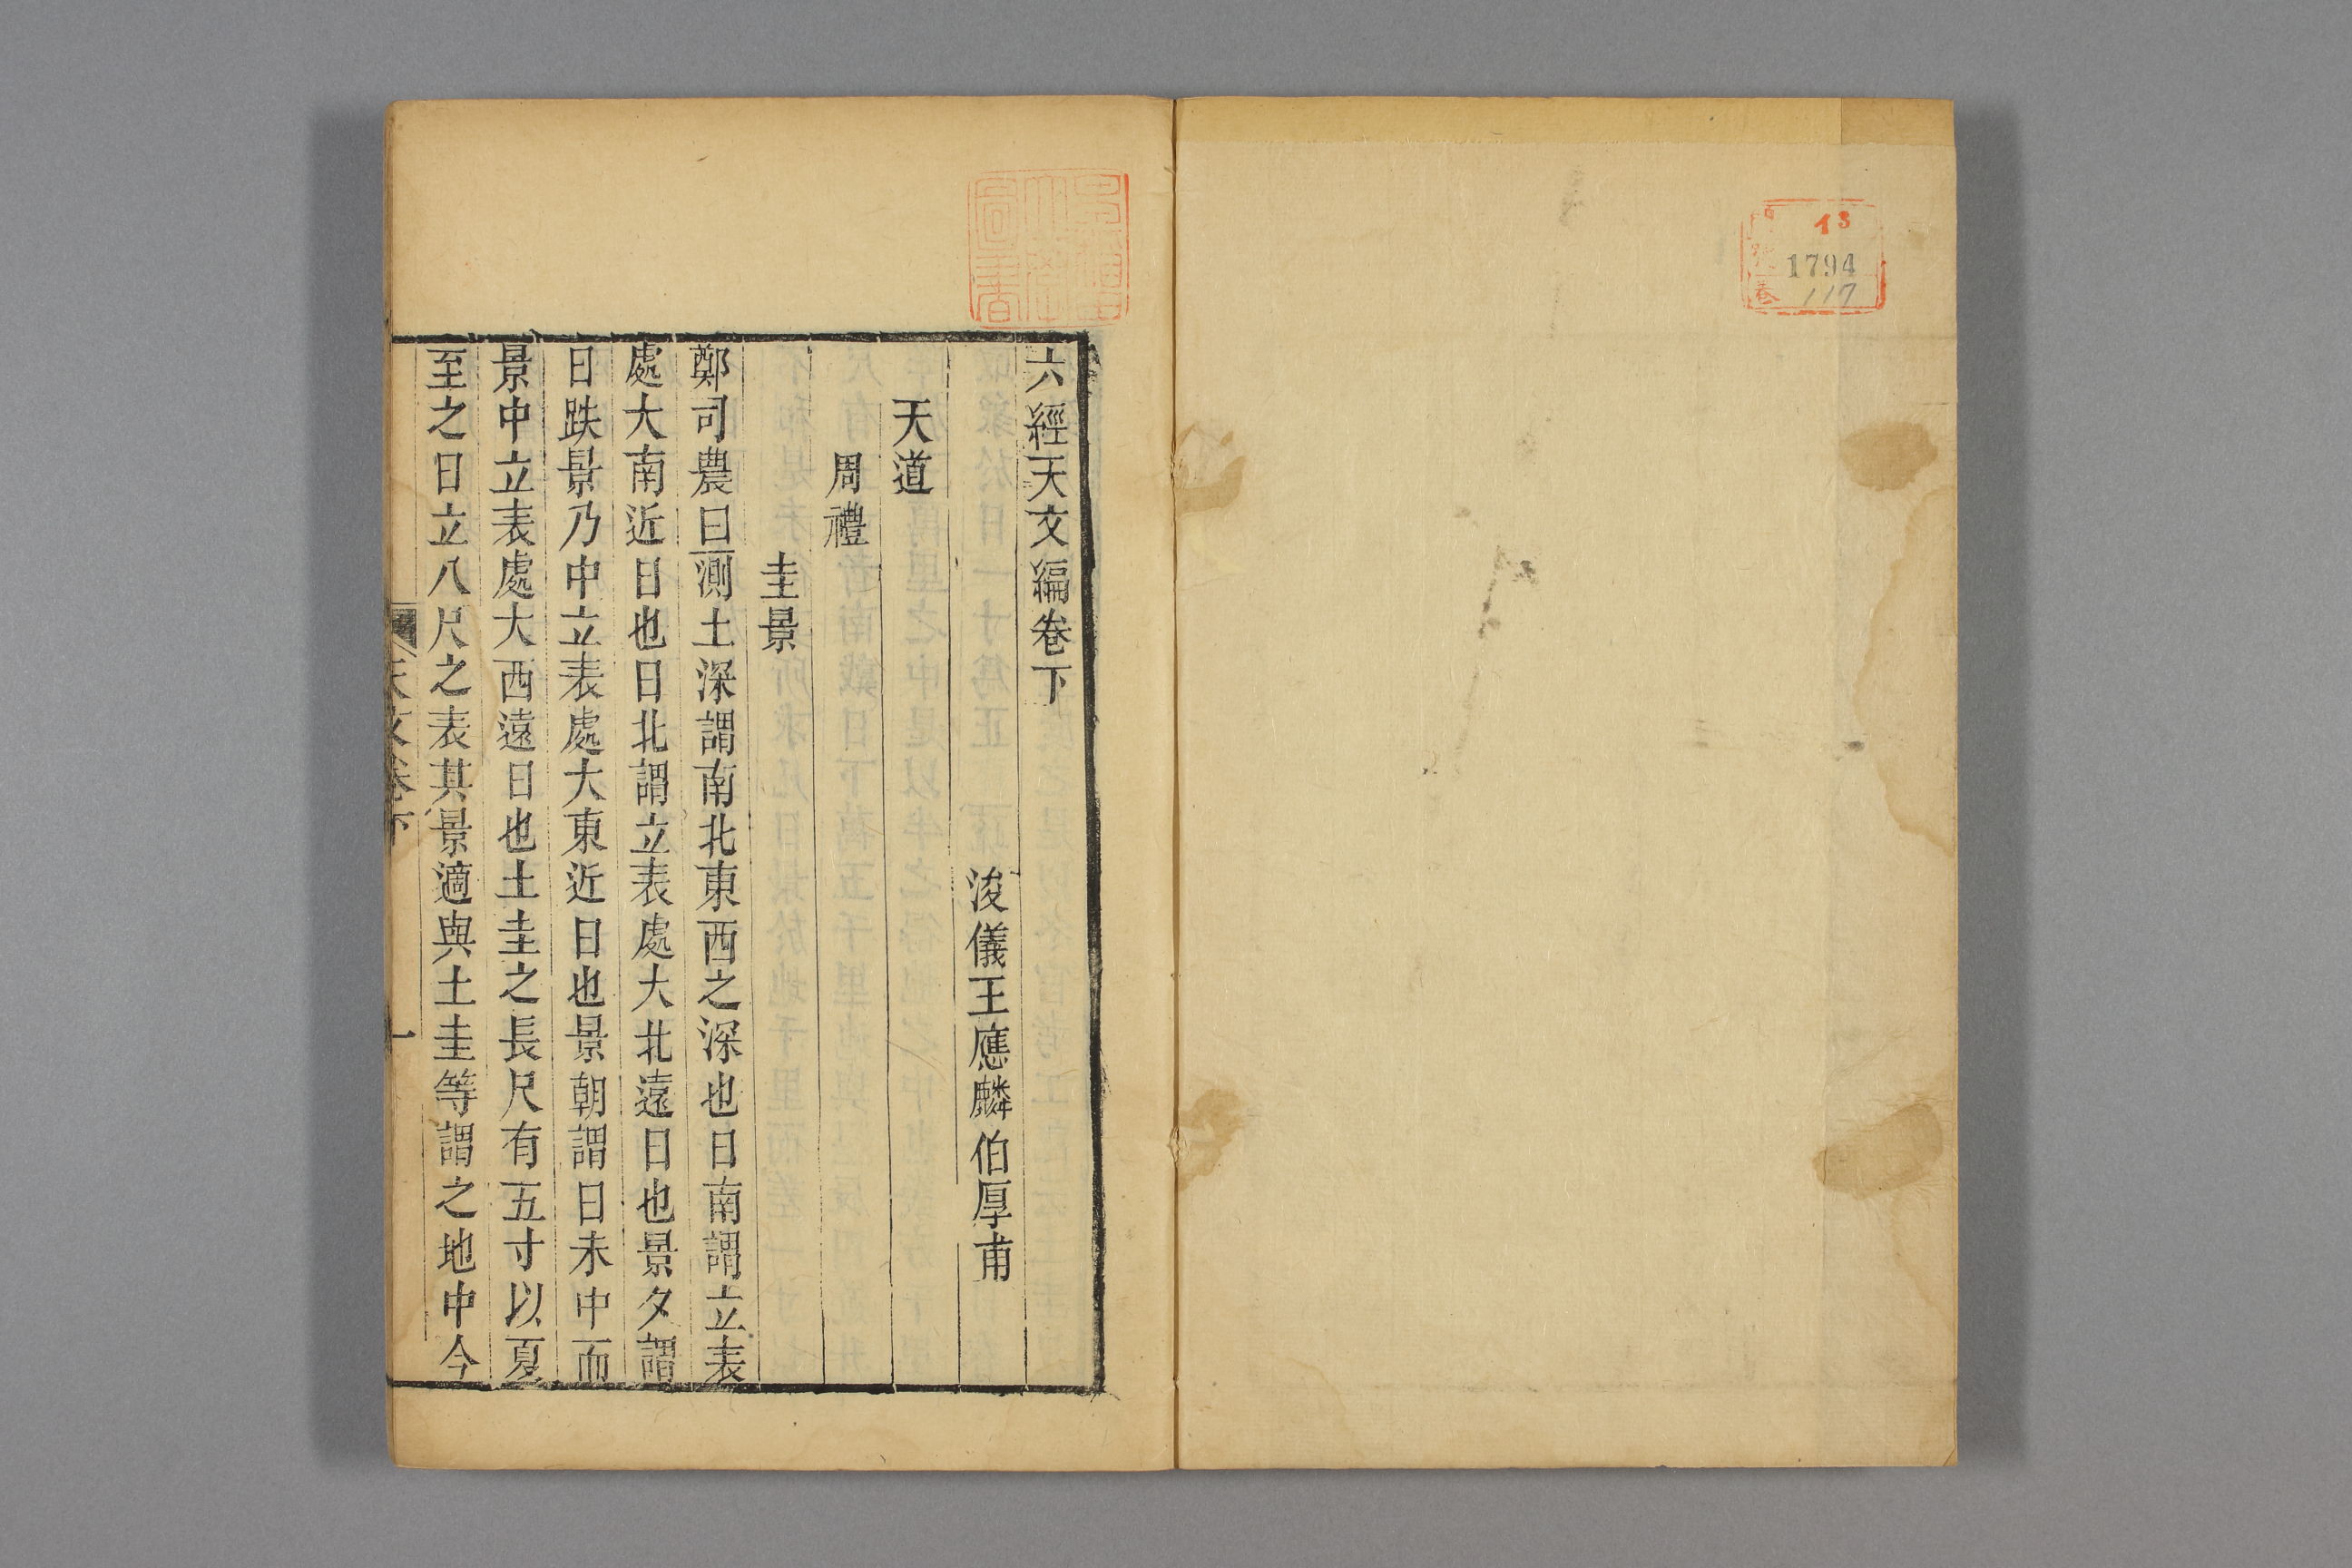 13
號
1794
卷
117
六經天文編卷下
浚儀王應麟伯厚甫
天道
周禮
圭景
鄭司農曰測土深謂南北東西之深也日南謂立表
處大南近日也日北謂立表處大北遠日也景夕謂
日跌景乃中立表處大東近日也景朝謂日未中而
景中立表處大西遠日也土圭之長尺有五寸以夏
至之日立八尺之表其景適與土圭等謂之地中今
天文卷下
一